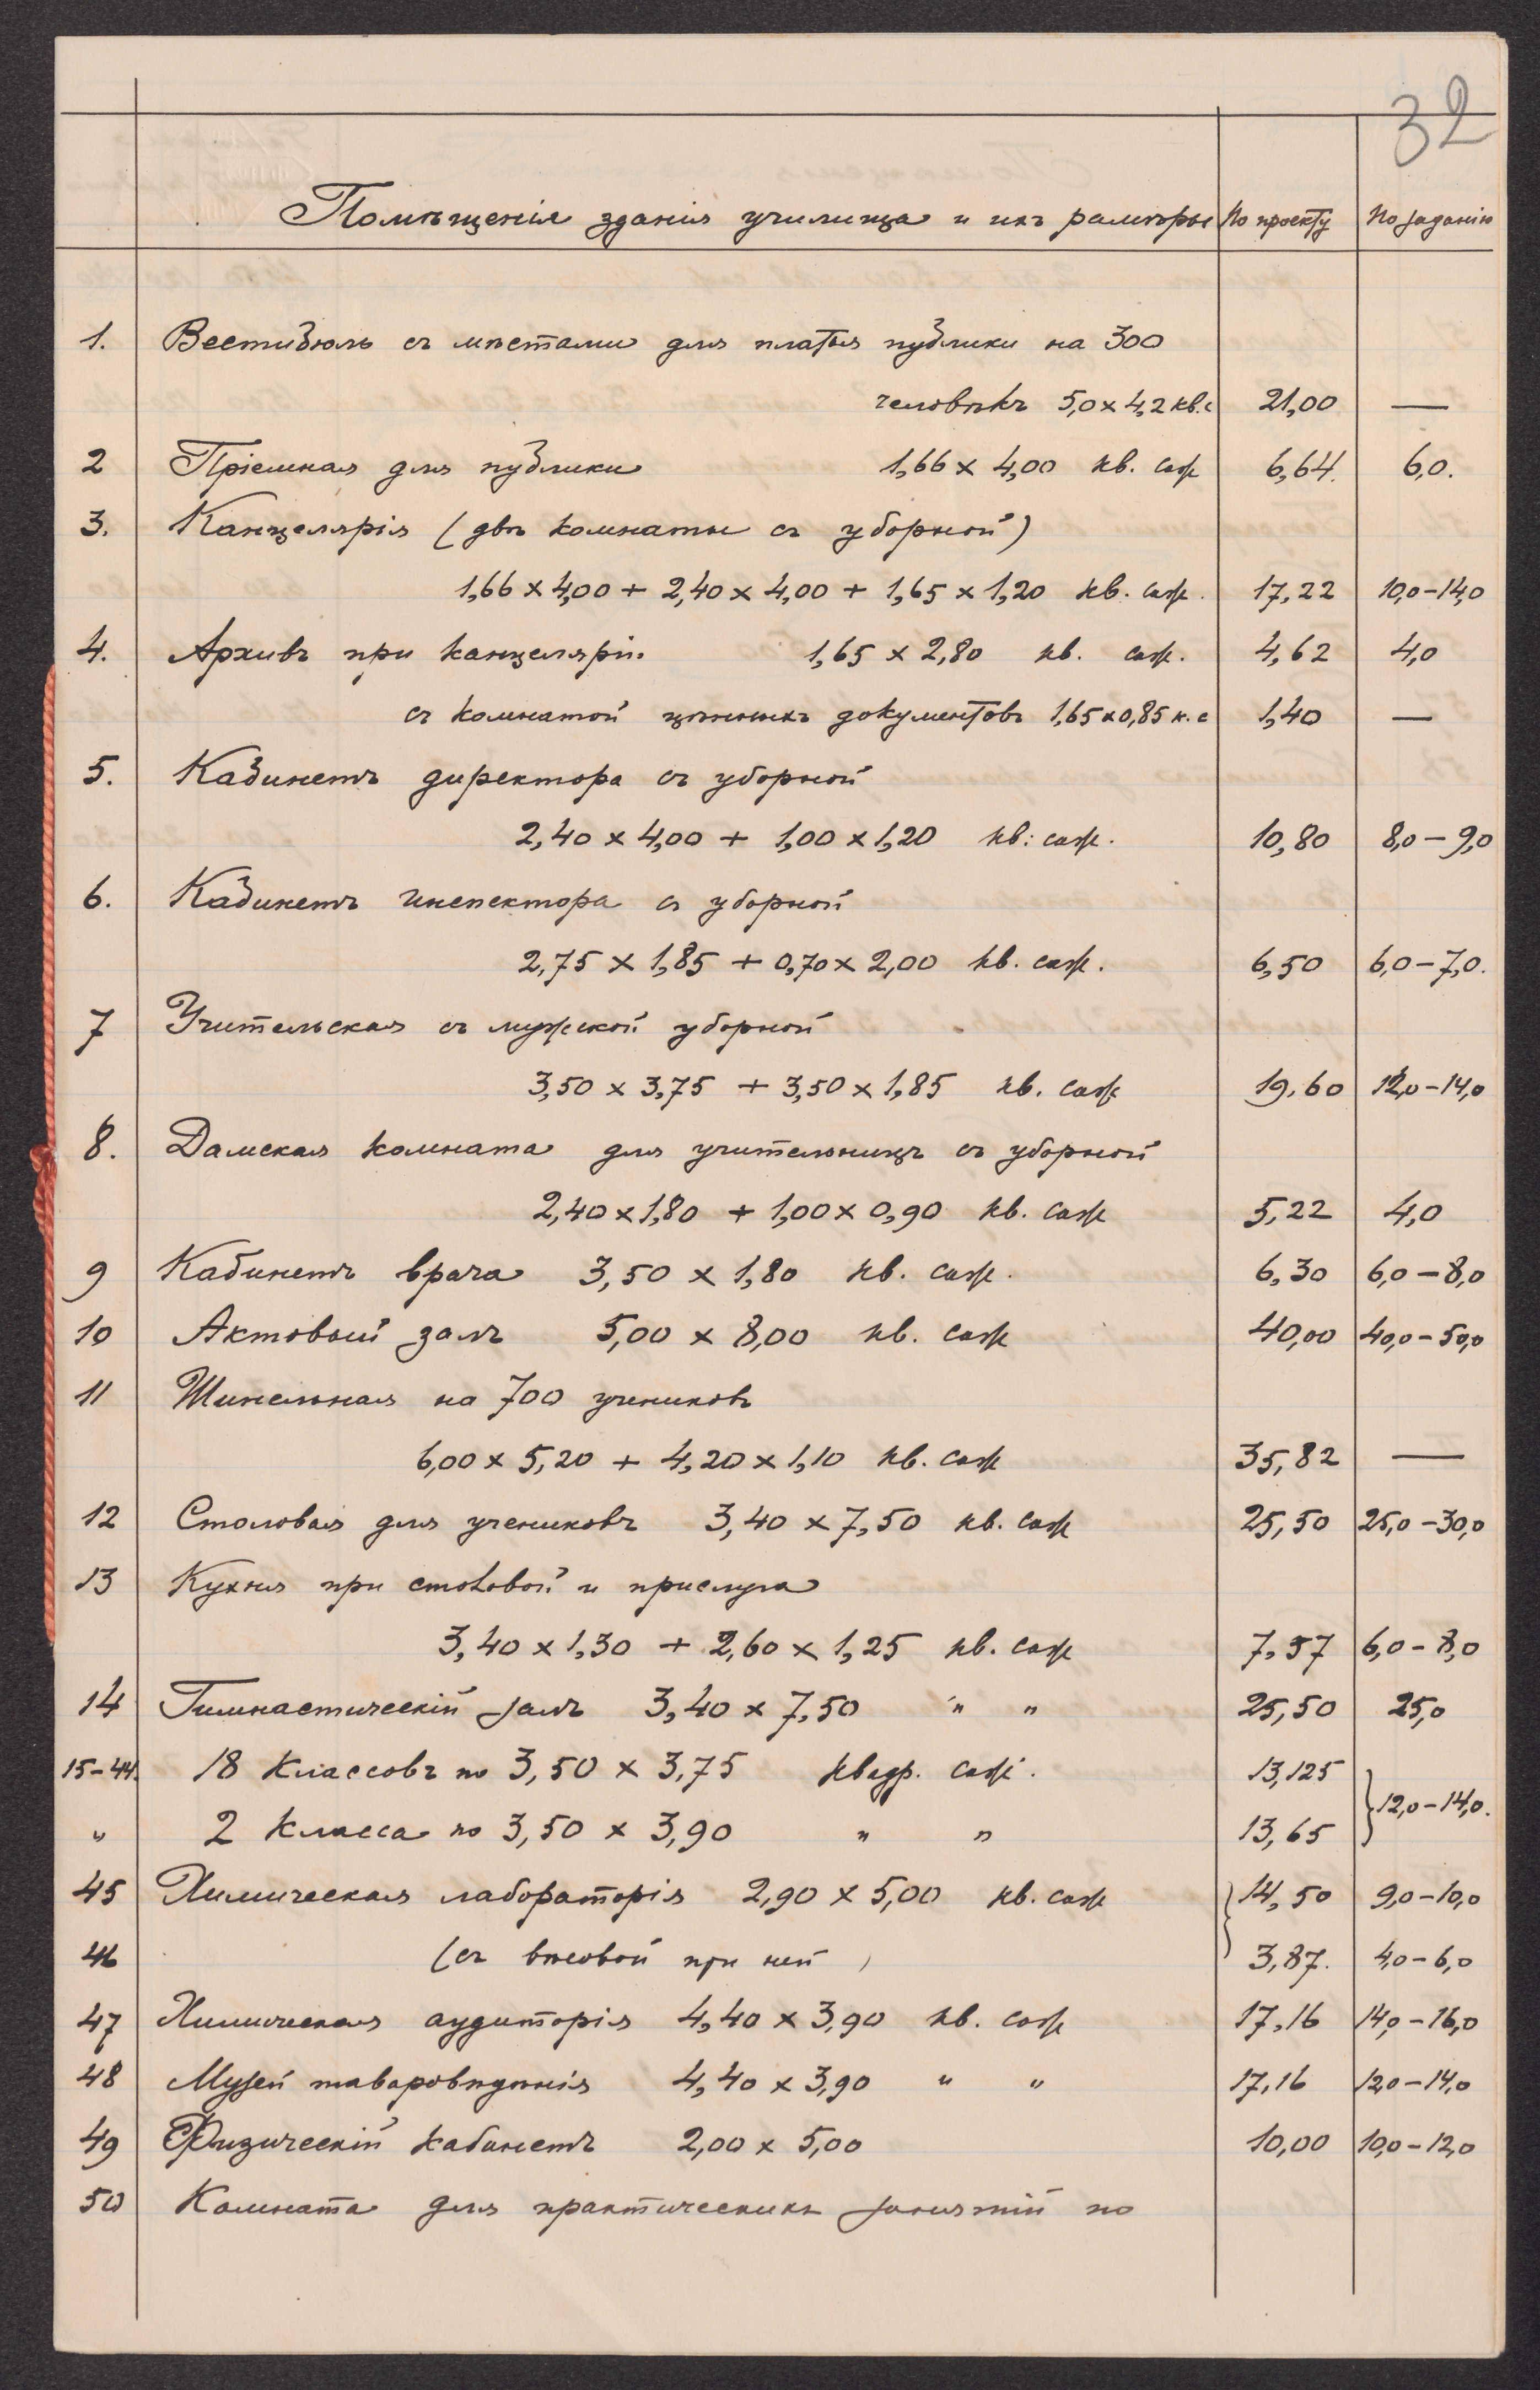 32
Помѣщенія зданія училища и ихъ размѣры По проекту По заданію
1. Вестибюль съ мѣстами для платья публики на 300
человѣкъ 5,0 x 4,2 кв.с 21,00 —
2 Пріемная для публики 1,66 x 4,00 кв. саж 6,64. 6,0.
3. Канцелярія (двѣ комнаты съ уборной)
1,66 x 4,00 + 2,40 x 4,00 + 1,65 x 1,20 кв. саж. 17,22 10,0-14,0
4. Архивъ при канцеляріи 1,65 x 2,80 кв. саж. 4,62 4,0
съ комнатой цѣнныхъ документовъ 1,65 x 0,85 к. с 1,40 —
5. Кабинетъ директора съ уборной
2,40 x 4,00 + 1,00 x 1,20 кв. саж. 10,80 8,0-9,0
6. Кабинетъ инспектора съ уборной
2,75 x 1,85 + 0,70 x 2,00 кв. саж. 6,50 6,0-7,0.
7 Учительская съ мужской уборной
3,50 x 3,75 + 3,50 x 1,85 кв. саж 19,60 12,0-14,0
8. Дамская комната для учительницъ съ уборной
2,40 x 1,80 + 1,00 x 0,90 кв. саж 5,22 4,0
9 Кабинетъ врача 3,50 x 1,80 кв. саж. 6,30 6,0-8,0
10 Актовый залъ 5,00 x 8,00 кв. саж 40,00 40,0-50,0
11 Шинельная на 700 учениковъ
6,00 x 5,20 + 4,20 x 1,10 кв. саж 35,82 —
12 Столовая для учениковъ 3,40 x 7,50 кв. саж 25,50 25,0-30,0
13 Кухня при столовой и прислуга
3,40 x 1,30 + 2,60 x 1,25 кв. саж 7,57 6,0-8,0
14 Гимнастическій залъ 3,40 x 7,50 " " 25,50 25,0
15-44. 18 классовъ по 3,50 x 3,75 квадр. саж. 13,125
12,0-14,0.
" 2 класса по 3,50 x 3,90 " " 13,65
45 Химическая лабораторія 2,90 x 5,00 кв. саж 14,50 9,0-10,0
46 (съ вѣсовой при ней) 3,87. 4,0-6,0
47 Химическая аудиторія 4,40 x 3,90 кв. саж 17,16 14,0-16,0
48 Музей товаровѣдѣнія 4,40 x 3,90 " " 17,16 12,0-14,0
49 Физическій кабинетъ 2,00 x 5,00 10,00 10,0-12,0
50 Комната для практическихъ занятій по